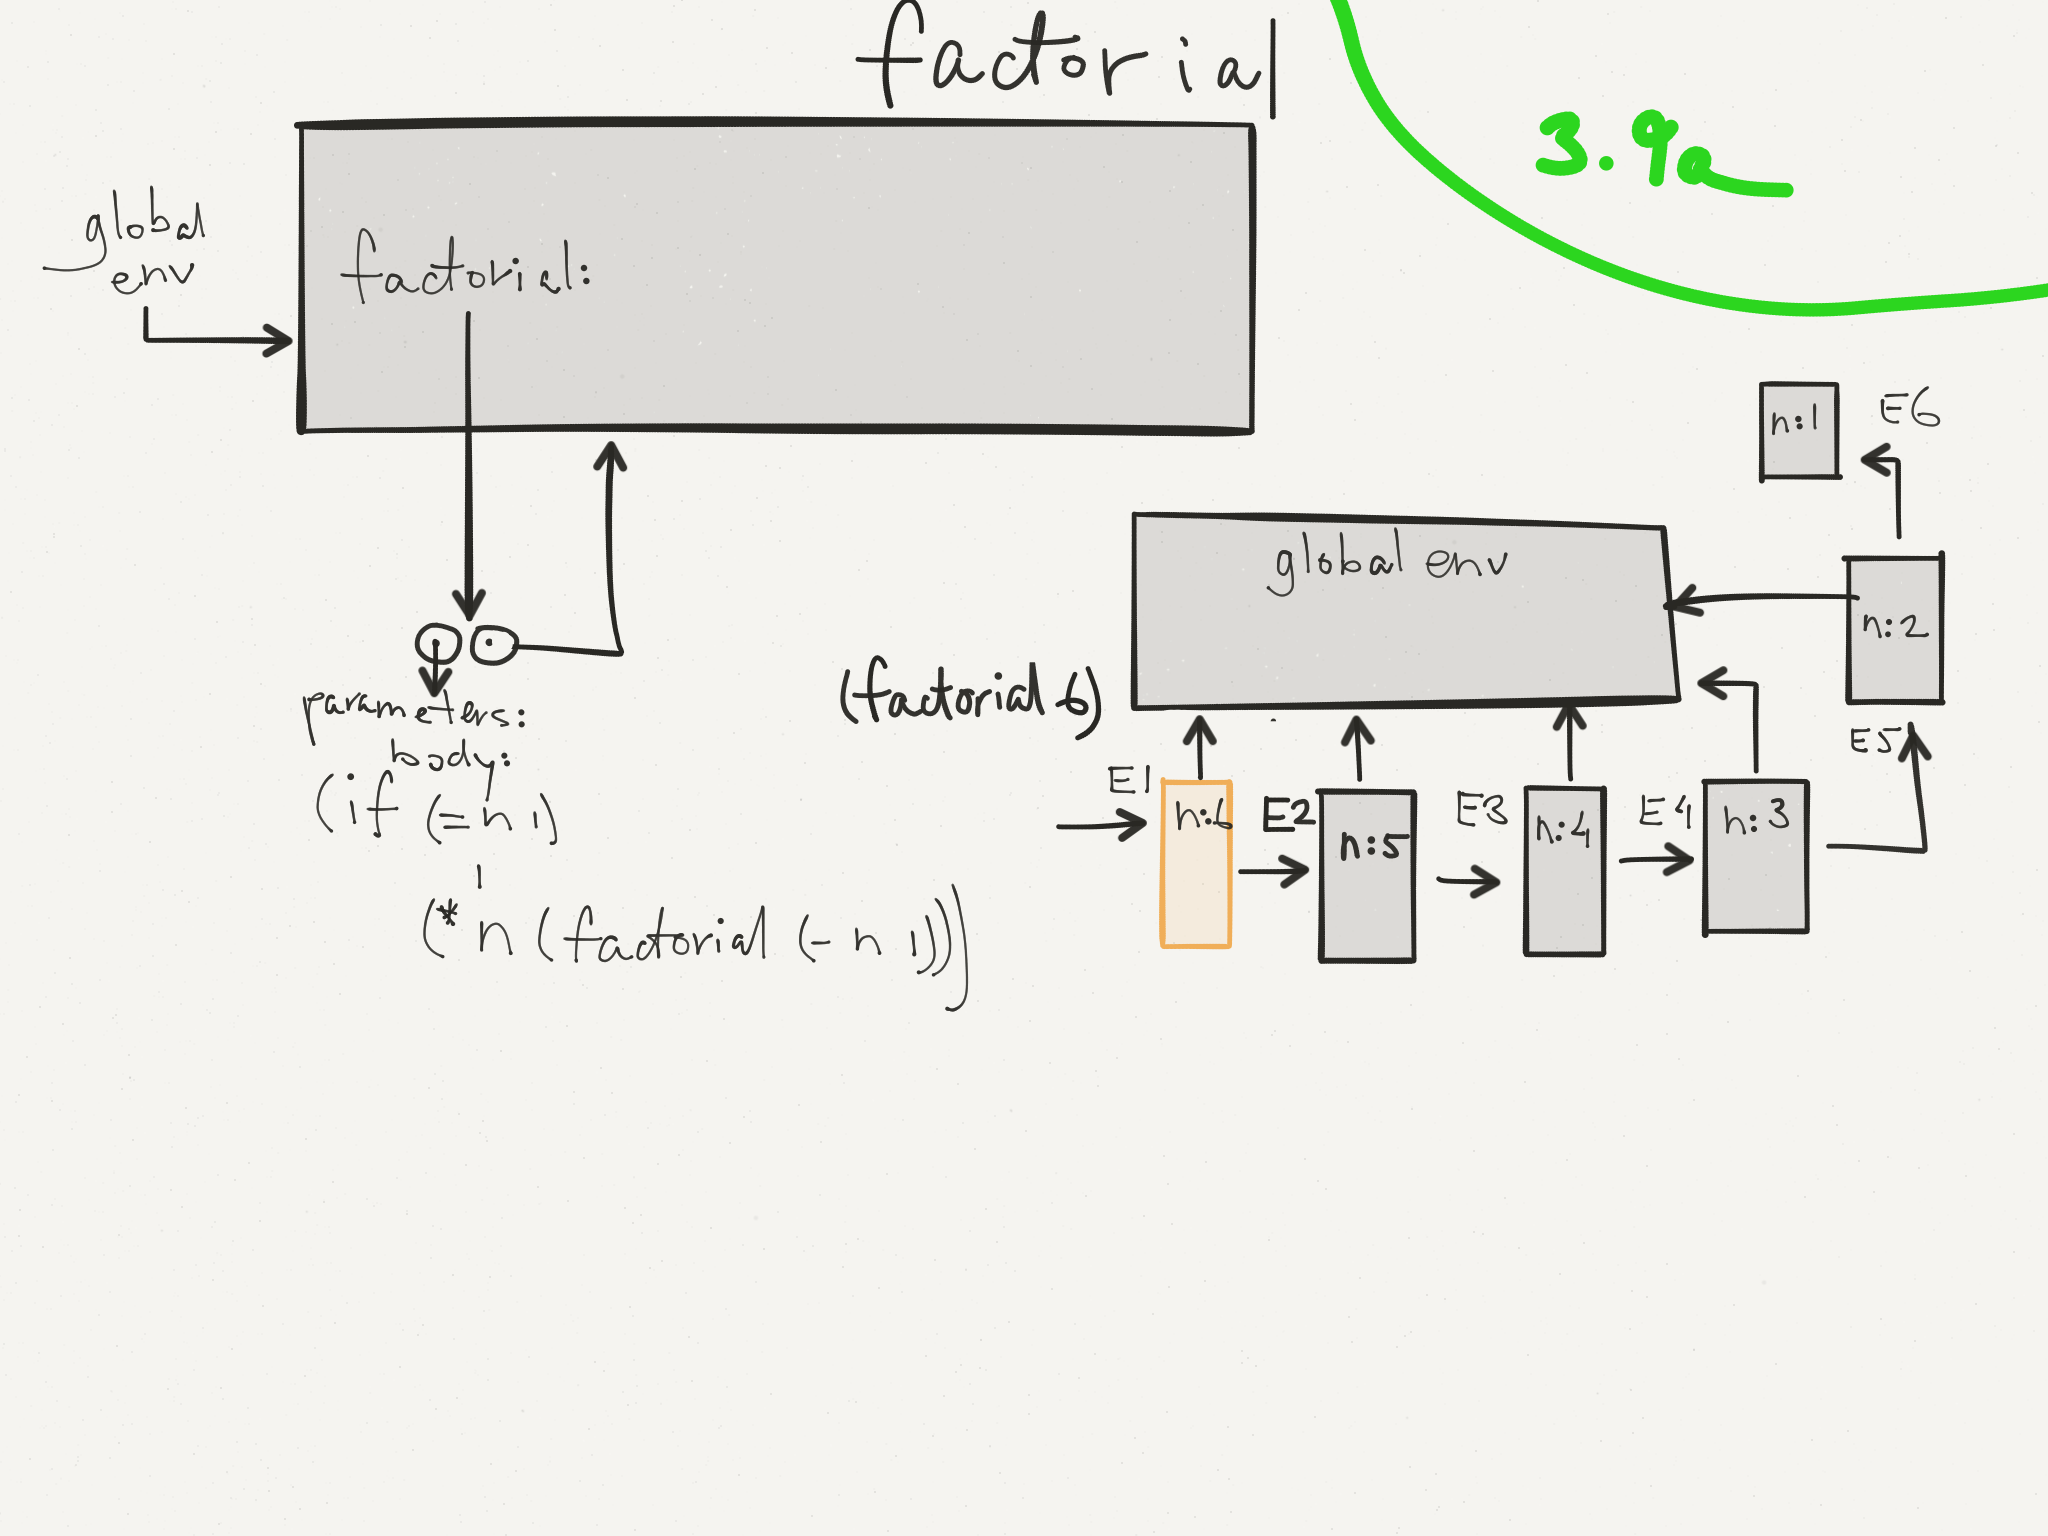 factorial
3.9a
global
env
factorial:
parameters:
body:
(if (= n 1)
1
(* n (factorial (- n 1))))
(factorial 6)
global env
E1
n:6
E2
n:5
E3
n:4
E4
n:3
E5
n:2
E6
n:1